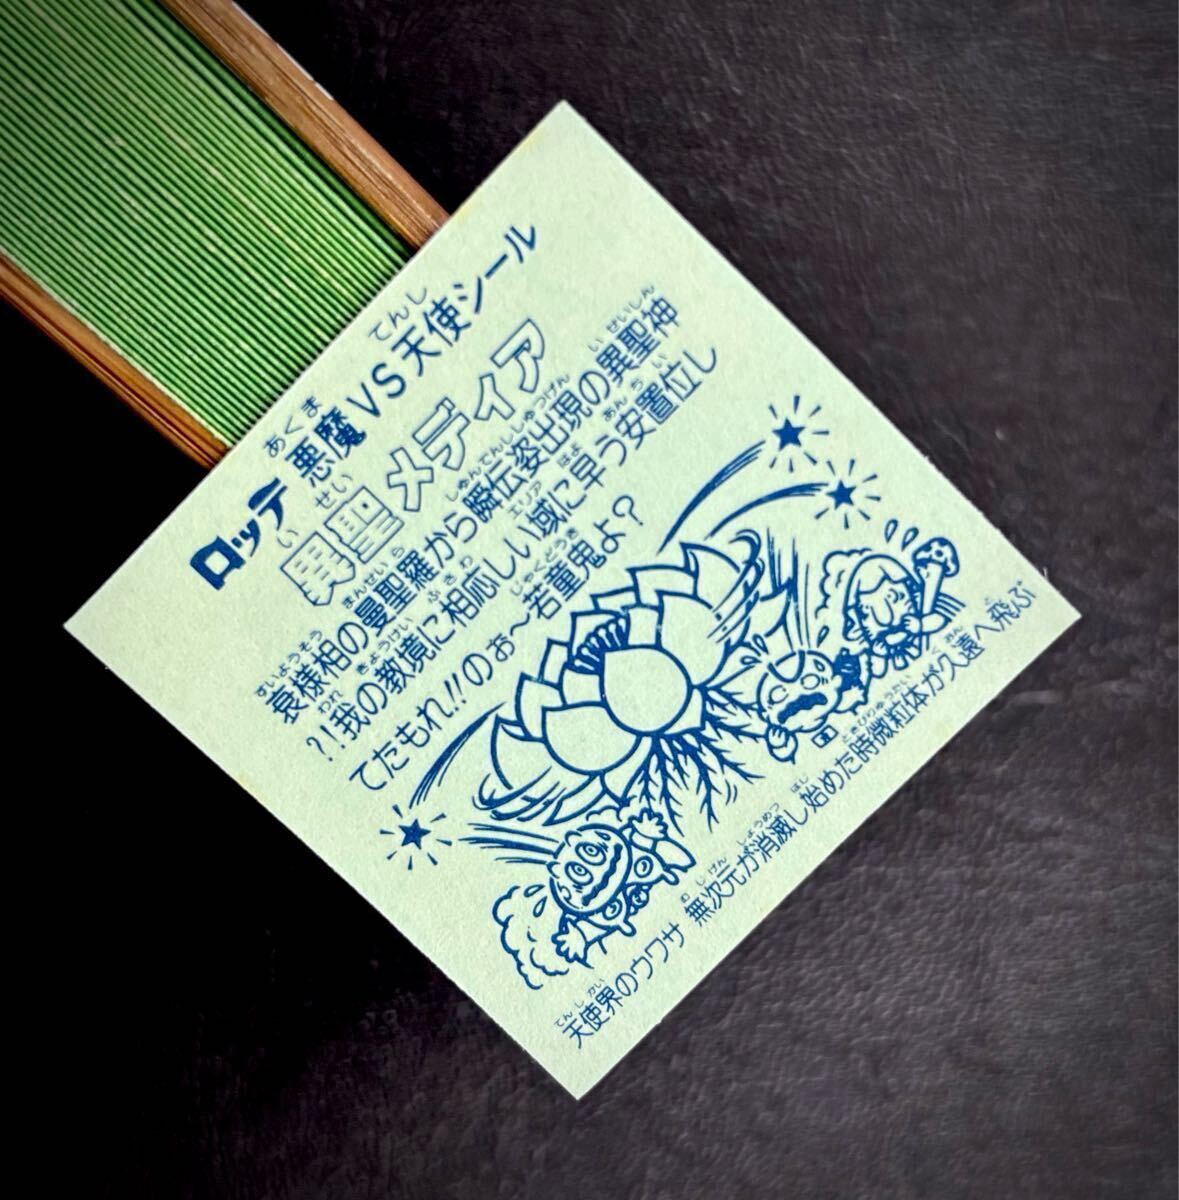 ロッテ 悪魔VS天使シール
異聖メディア
哀様相の曼聖羅から瞬伝姿出現の異聖神
?!我の教境に相応しい域に早う安置位し
てたもれ!!のぉ〜若童鬼よ?
天使界のウワサ 無次元が消滅し始めた時微粒体が久遠へ飛ぶ